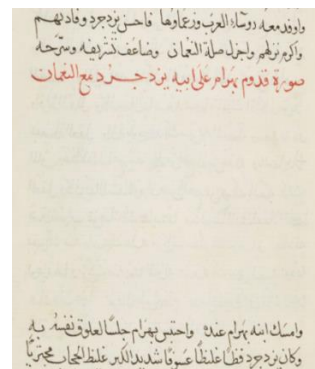 واوفد معه رؤساء العرب وزعماؤها فاحسن يزدجرد وفادتهم
واكرم نزلهم واجزل صلة النعمان وضاعف تشريفه وسرّحه
صورة قدوم بهرام على ابيه يزدجرد مع النعمان
وامسك ابنه بهرام عنده واحتبس بهرام جلسا لعلوق نفسه به
وكان يزدجرد فظا غليظا عسوفا شديد الكبر غليظ الحجاب